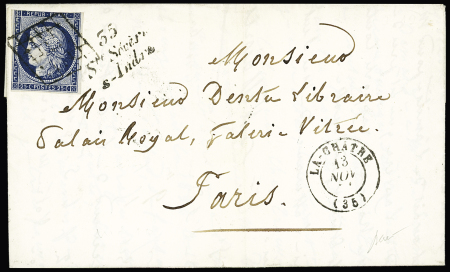 REPUB. FRANC.
25 C. POSTES 25 C.
35
Ste Sévère
s-Indre
Monsieur
Monsieur Denta Libraire
Palais Royal, Galerie Vitrée.
Paris.
LA-CHATRE
13
NOV
(35)